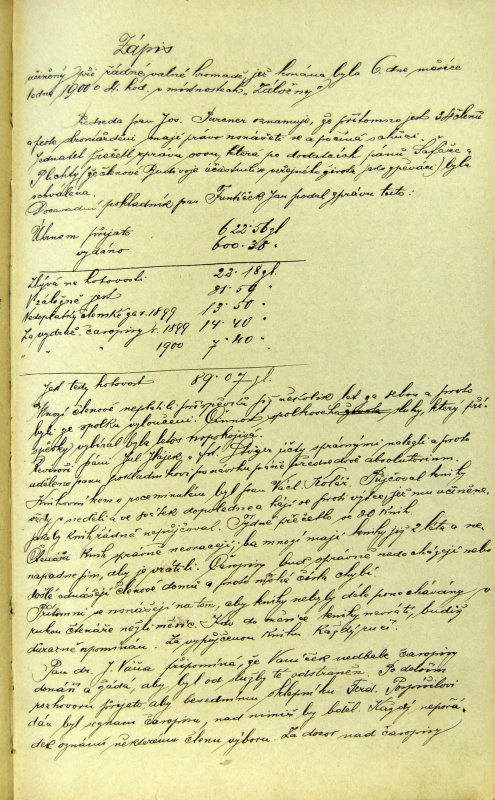 Zápis
učiněný při řádné valné hromadě, jež konána byla 6. dne měsíce
ledna 1900 o 4. hod. v místnostech „Záložny“
Předseda pan Jos. oznamuje, že přítomno jest 24 členů
a proto shromáždění mají právo usnášeti se a počíná schůzi.
Jednatel přečetl zprávu svou, která po dodatcích pánů Šafáře a
Plchty byla
schválena.
Dosavadní pokladník pan František Jan podal zprávu tuto:
Úhrnem přijato 622·56 zl
vydáno 600·38 „
Zbývá na hotovosti 22·18 zl.
V záložně jest 31·59 „
Nedoplatky členské za r. 1899 13·50 „
Za vydraž. časopisy r. 1899 14·40 „
„ „ 1900 7·40 „
Jest tedy hotovost 89·07 zl.
Mnozí členové neplatili příspěvků již několik let za sebou a proto
byli ze spolku vyloučeni. Činnost spolkového sluhy, který pří-
spěvky vybíral byla letos uspokojivá.
Revisoři páni Jul. Hájek a účty správnými nalezli a proto
uděleno panu pokladníkovi po návrhu páně předsedově absolutorium.
Knihovníkem v roce minulém byl pan Václ. Půjčoval knihy
vždy v neděli a ve svátek dopoledne a hájí se proti výtce, jež mu učiněna,
jakoby knih řádně nepůjčoval. Týdně přečetlo se 20 knih.
Čtenáři knih správně nevracejí, ba mnozí mají knihy již 2 léta a ne-
napadne jim, aby je vrátili. Časopisy buď správně nedocházejí nebo
odnášejí členové domů a proto mnohá čísla chybí.
Přítomní se usnášejí na tom, aby knihy nebyly déle ponechávány v
rukou čtenáře nežli měsíc. Kdo do měsíce knihy nevrátí, budiž
důrazně upomínán. Za vypůjčenou knihu každý ručí.
Pan dr. J. Váňa připomíná, že Vaníček nedbale časopisy
donáší a žádá, aby byl od služby té odstraněn. Po delším
rozhovoru přijato, aby besednímu sklepníku Ferd. Pospíšilovi
dán byl seznam časopisů, nad nimiž by bděl. Každý nepořá-
dek oznámí některému členu výboru. Za dozor nad časopisy